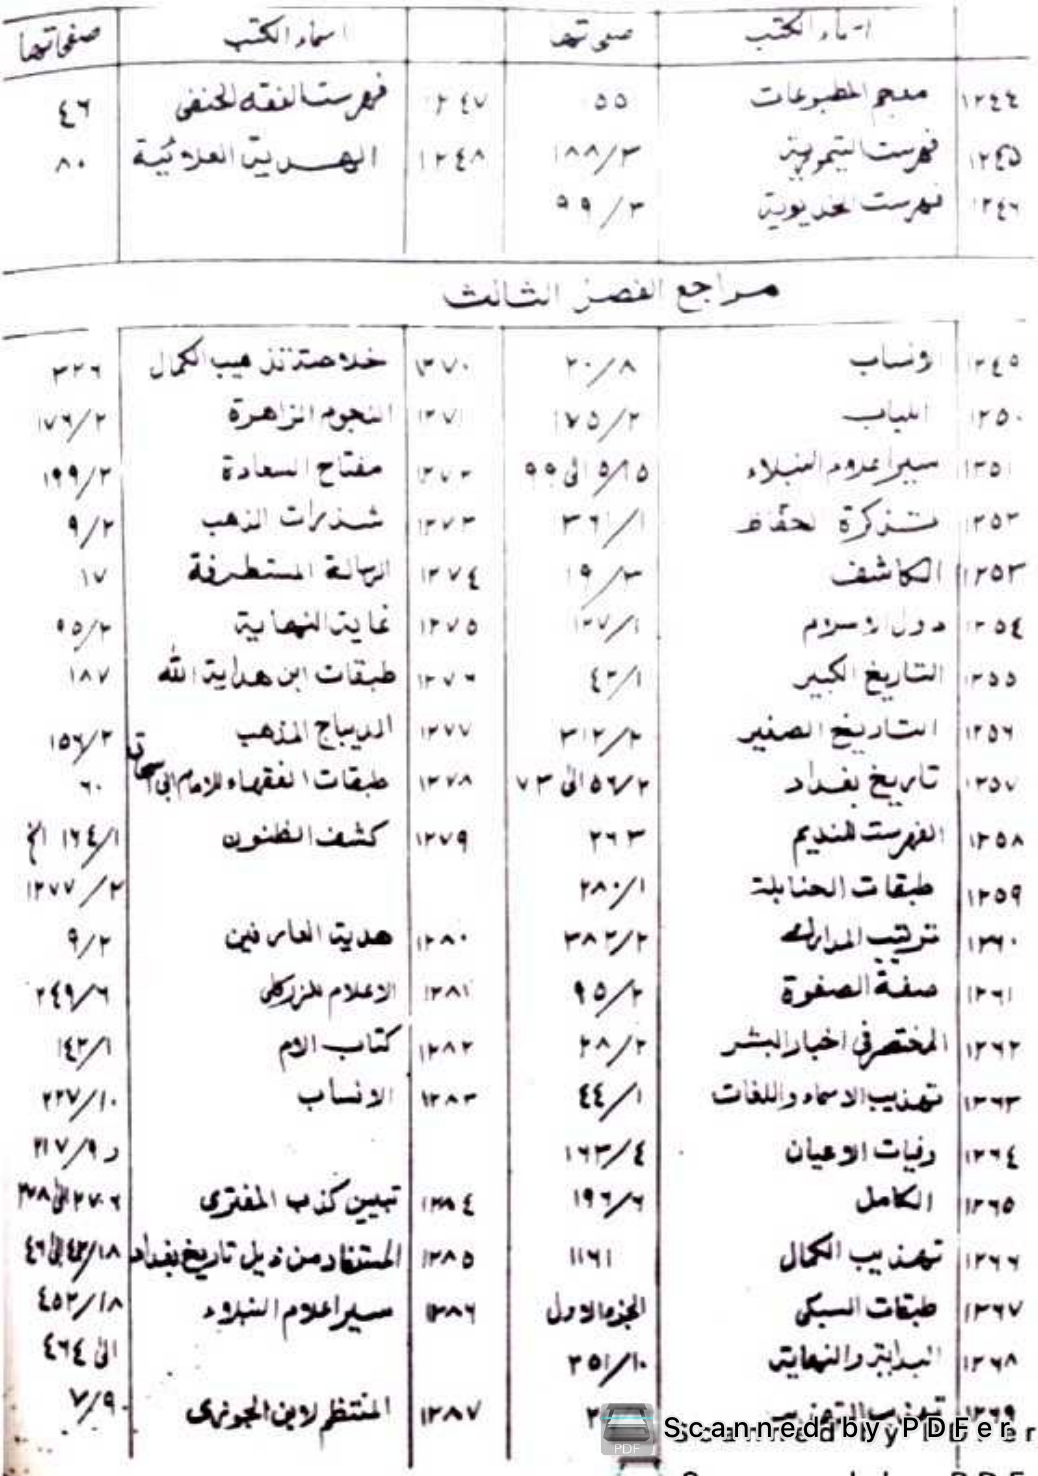 اسماء الكتب صفحاتها اسماء الكتب صفحاتها
١٢٤٤ معجم المطبوعات ٥٥ ١٢٤٧ فهرست الفقه الحنفي ٤٦
١٢٤٥ فهرست التيمورية ٣/١٨٨ ١٢٤٨ الهدية العلائية ٨٠
١٢٤٦ فهرست الخديوية ٣/٥٩
مراجع الفصل الثالث
الانساب ٨/٢٠ ١٢٧٠ خلاصة تذهيب الكمال ٣٢٦
١٢٥٠ اللباب ٢/١٧٥ ١٢٧١ النجوم الزاهرة ٢/١٧٦
١٢٥١ سير اعلام النبلاء ٥/١٥ الى ٩٩ ١٢٧٢ مفتاح السعادة ٢/١٩٩
١٢٥٢ تذكرة الحفاظ ١/٣٦١ ١٢٧٣ شذرات الذهب ٢/٩
١٢٥٣ الكاشف ٣/١٩ ١٢٧٤ الرسالة المستطرفة ١٧
١٢٥٤ دول الاسلام ١/١٢٧ ١٢٧٥ غاية النهاية ٢/٩٥
١٢٥٥ التاريخ الكبير ١/٤٢ ١٢٧٦ طبقات ابن هداية الله ١٨٧
١٢٥٦ التاريخ الصغير ٢/٣١٢ ١٢٧٧ الديباج المذهب ٢/١٥٦
١٢٥٧ تاريخ بغداد ٢/٥٦ الى ٧٣ ١٢٧٨ طبقات الفقهاء للامام ابي اسحاق ٦٠
١٢٥٨ الفهرست للنديم ٢٦٣ ١٢٧٩ كشف الظنون ١/١٦٤ الخ
١٢٥٩ طبقات الحنابلة ١/٢٨٠ ٢/١٢٧٧
١٢٦٠ ترتيب المدارك ٢/٣٨٢ ١٢٨٠ هدية العارفين ٢/٩
١٢٦١ صفة الصفوة ٢/٩٥ ١٢٨١ الاعلام للزركلي ٦/٢٤٩
١٢٦٢ المختصر في اخبار البشر ٢/٢٨ ١٢٨٢ كتاب الام ١/١٤٢
١٢٦٣ تهذيب الاسماء واللغات ١/٤٤ ١٢٨٣ الانساب ١٠/٢٢٧
١٢٦٤ وفيات الاعيان ٤/١٦٣ و ٩/٢١٧
١٢٦٥ الكامل ٦/١٩٦ ١٢٨٤ تبيين كذب المفترى ٢٧٠٦ الى ٢٧٨
١٢٦٦ تهذيب الكمال ١١٦١ ١٢٨٥ المستفاد من ذيل تاريخ بغداد ١٨/٤٢ الى ٤٦
١٢٦٧ طبقات السبكي الجزء الاول ١٢٨٦ سير اعلام النبلاء ١٨/٤٥٢
١٢٦٨ البداية والنهاية ١٠/٢٥١ الى ٤٦٤
١٢٦٩ تهذيب التهذيب ١٢٨٧ المنتظم لابن الجوزى ٩/٧
Scanned by PDFer
PDF